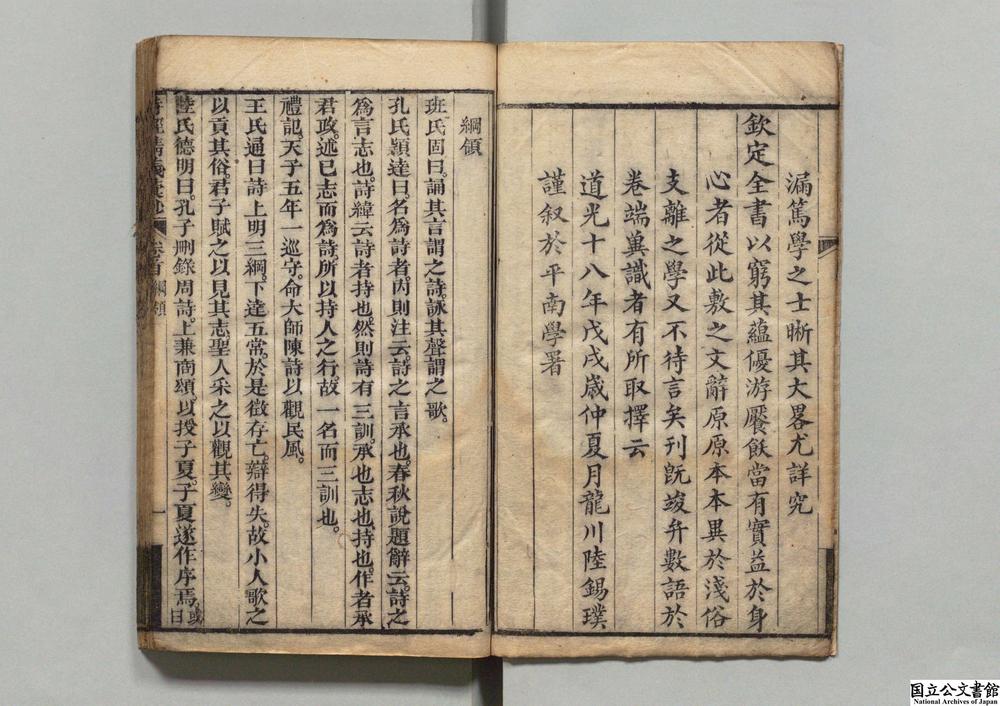 漏篤學之士晣其大畧尤詳究
欽定全書以窮其蘊優游饜飫當有實益於身
心者從此敷之文辭原原本本異於淺俗
支離之學又不待言矣刊既竣弁數語於
卷端冀識者有所取擇云
道光十八年戊戌歲仲夏月龍川陸錫璞
謹叙於平南學署
綱領
班氏固曰。誦其言謂之詩。詠其聲謂之歌。
孔氏穎達曰。名為詩者。內則注云。詩之言承也。春秋說題辭云。詩之
為言志也。詩緯云詩者持也然則詩有三訓。承也志也持也。作者承
君政。述已志而為詩。所以持人之行。故一名而三訓也。
禮記。天子五年一巡守。命大師陳詩以觀民風。
王氏通曰詩上明三綱。下達五常。於是徵存亡。辯得失。故小人歌之
以貢其俗。君子賦之以見其志。聖人采之以觀其變。
陸氏德明曰。孔子刪錄周詩。上兼商頌。以授子夏。子夏遂作序焉。或曰
詩經精義彙鈔 卷首 綱領 一
国立公文書館
National Archives of Japan